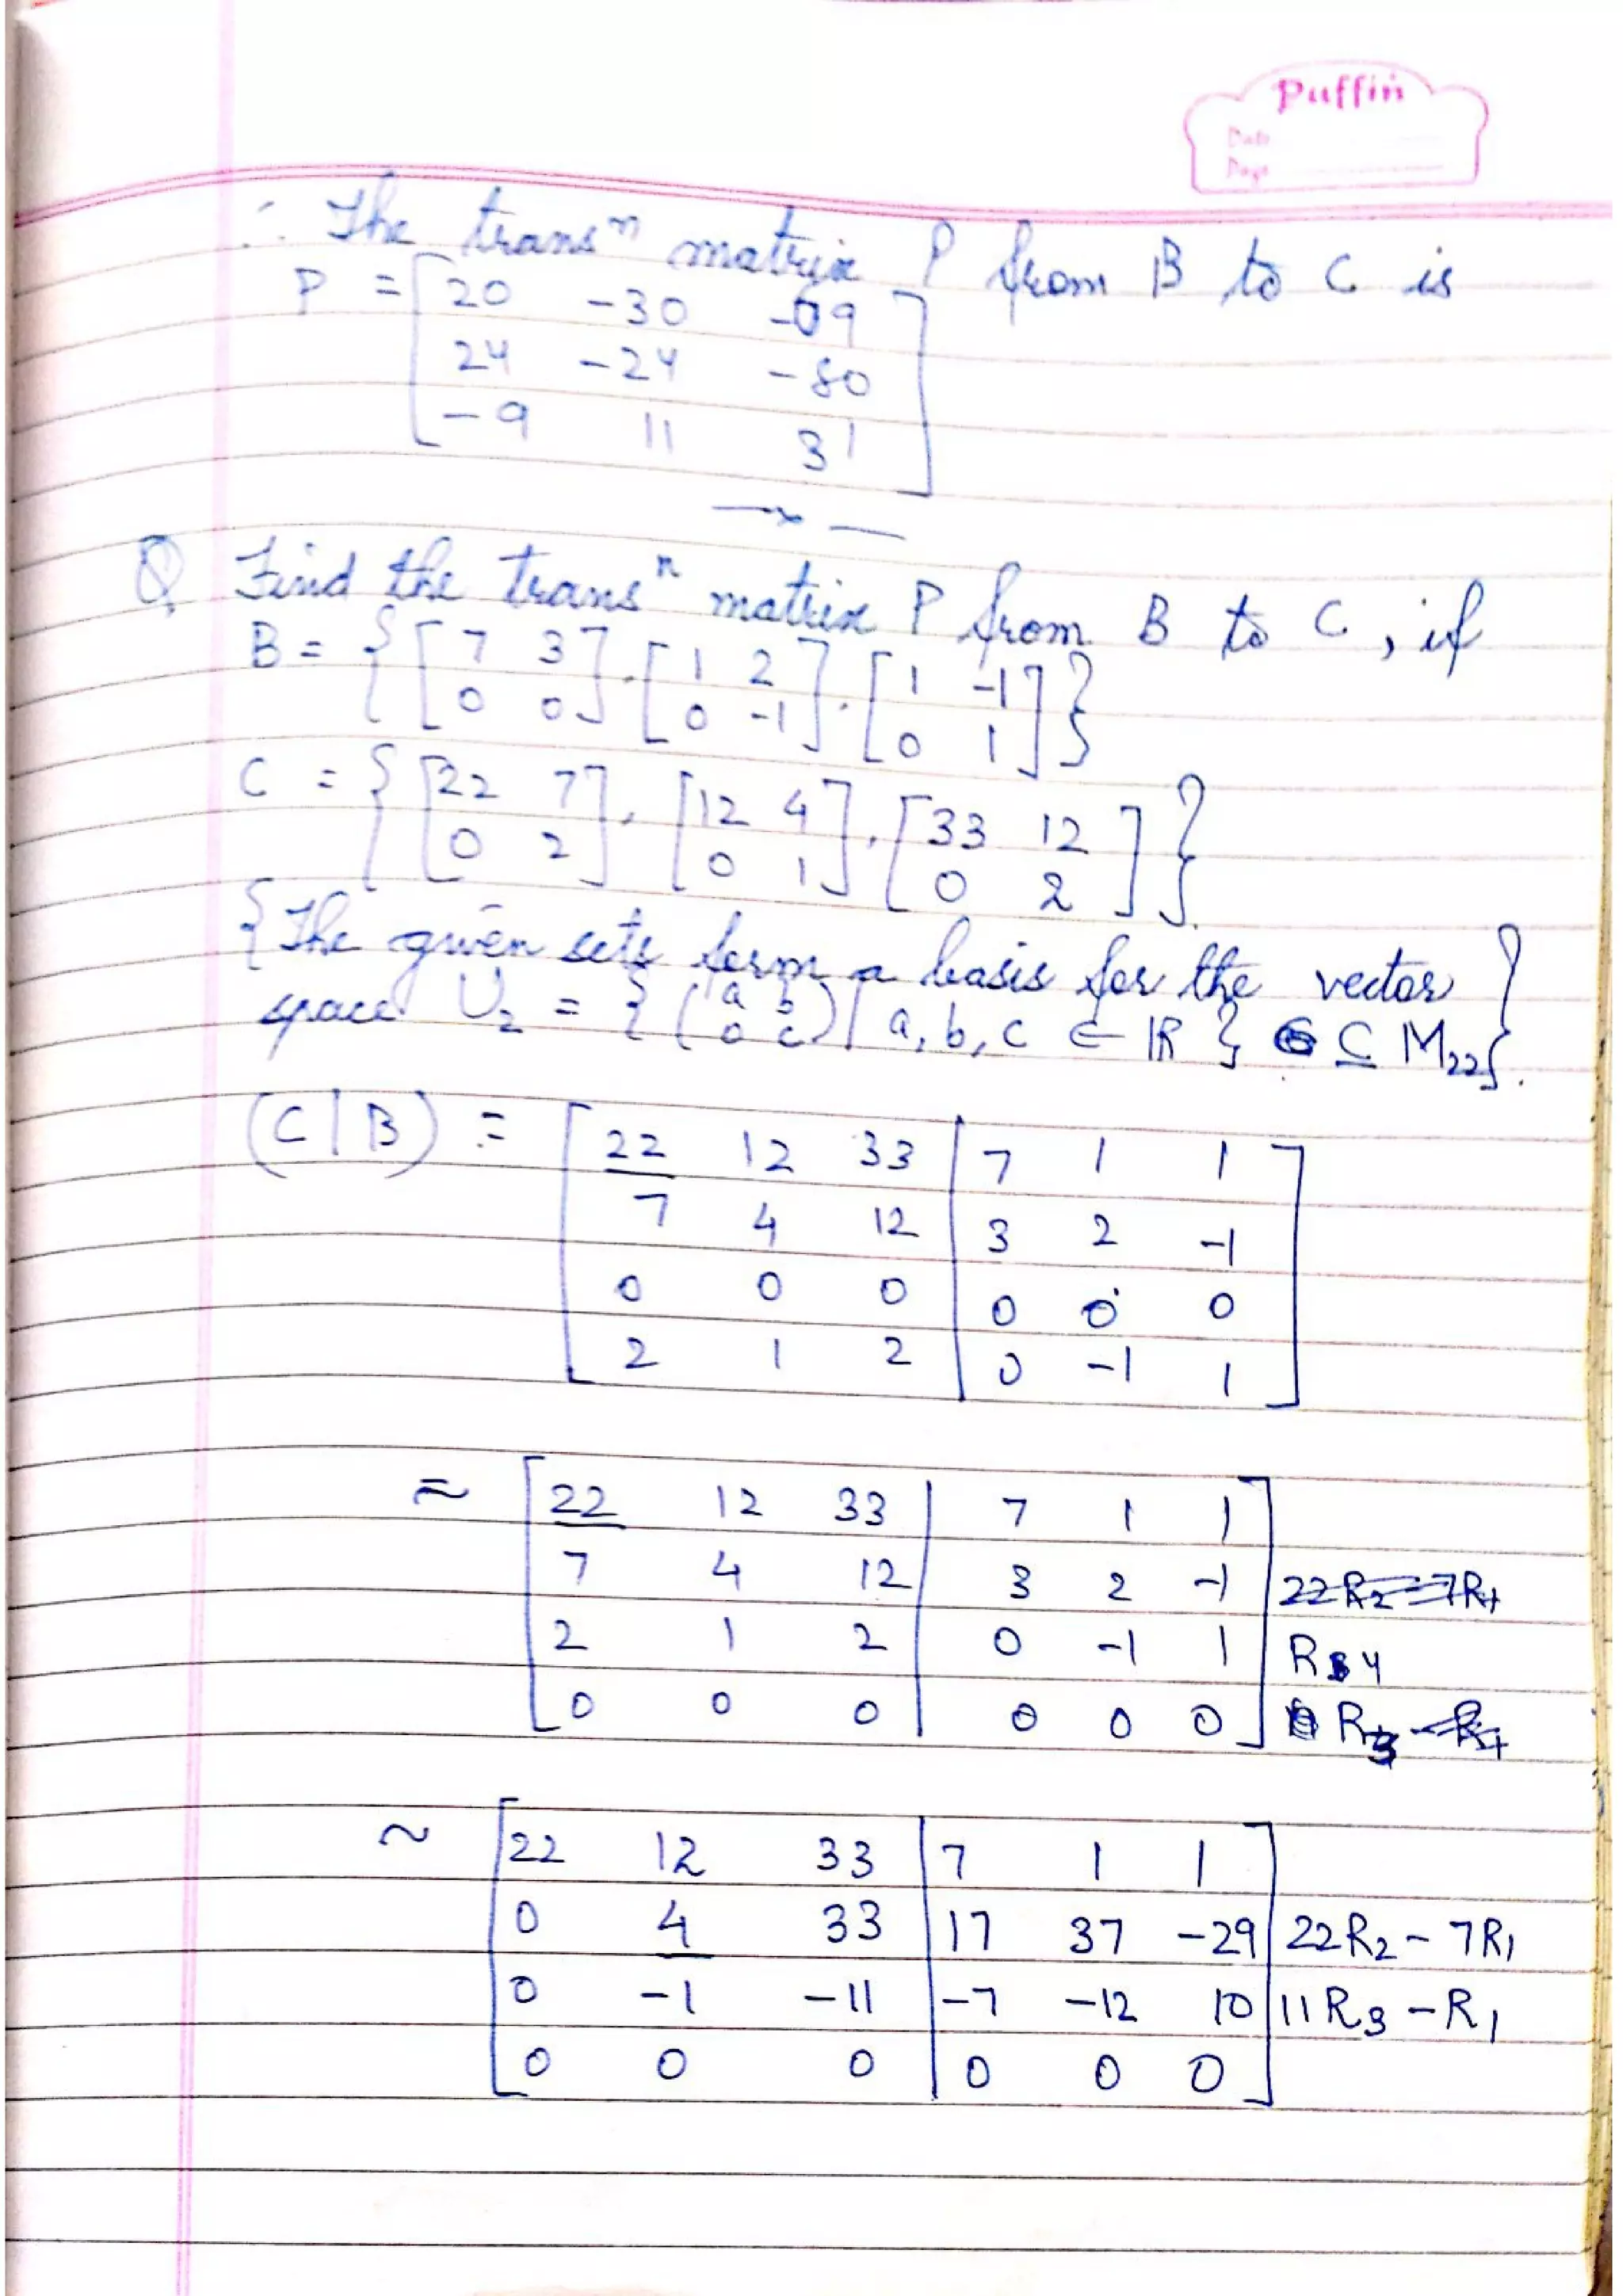 Puffin
Date
Page
∴ The transⁿ matrix P from B to C is
P = [ 20 -30 -09
24 -24 -80
-9 11 31 ]
—x—
Q Find the transⁿ matrix P from B to C, if
B = { [ 7 3 ; 0 0 ], [ 1 2 ; 0 -1 ], [ 1 -1 ; 0 1 ] }
C = { [ 22 7 ; 0 2 ], [ 12 4 ; 0 1 ], [ 33 12 ; 0 2 ] }.
{ The given sets form a basis for the vector
space U₂ = { ( a b ; 0 c ) | a, b, c ∈ ℝ } ⊆ M₂₂ }.
(C | B) = [ 22 12 33 | 7 1 1
7 4 12 | 3 2 -1
0 0 0 | 0 0 0
2 1 2 | 0 -1 1 ]
≈ [ 22 12 33 | 7 1 1
7 4 12 | 3 2 -1 ] 22R₂ - 7R₁
2 1 2 | 0 -1 1 ] R₃₄
0 0 0 | 0 0 0 ]
~ [ 22 12 33 | 7 1 1
0 4 33 | 17 37 -29 ] 22R₂ - 7R₁
0 -1 -11 | -7 -12 10 ] 11R₃ - R₁
0 0 0 | 0 0 0 ]